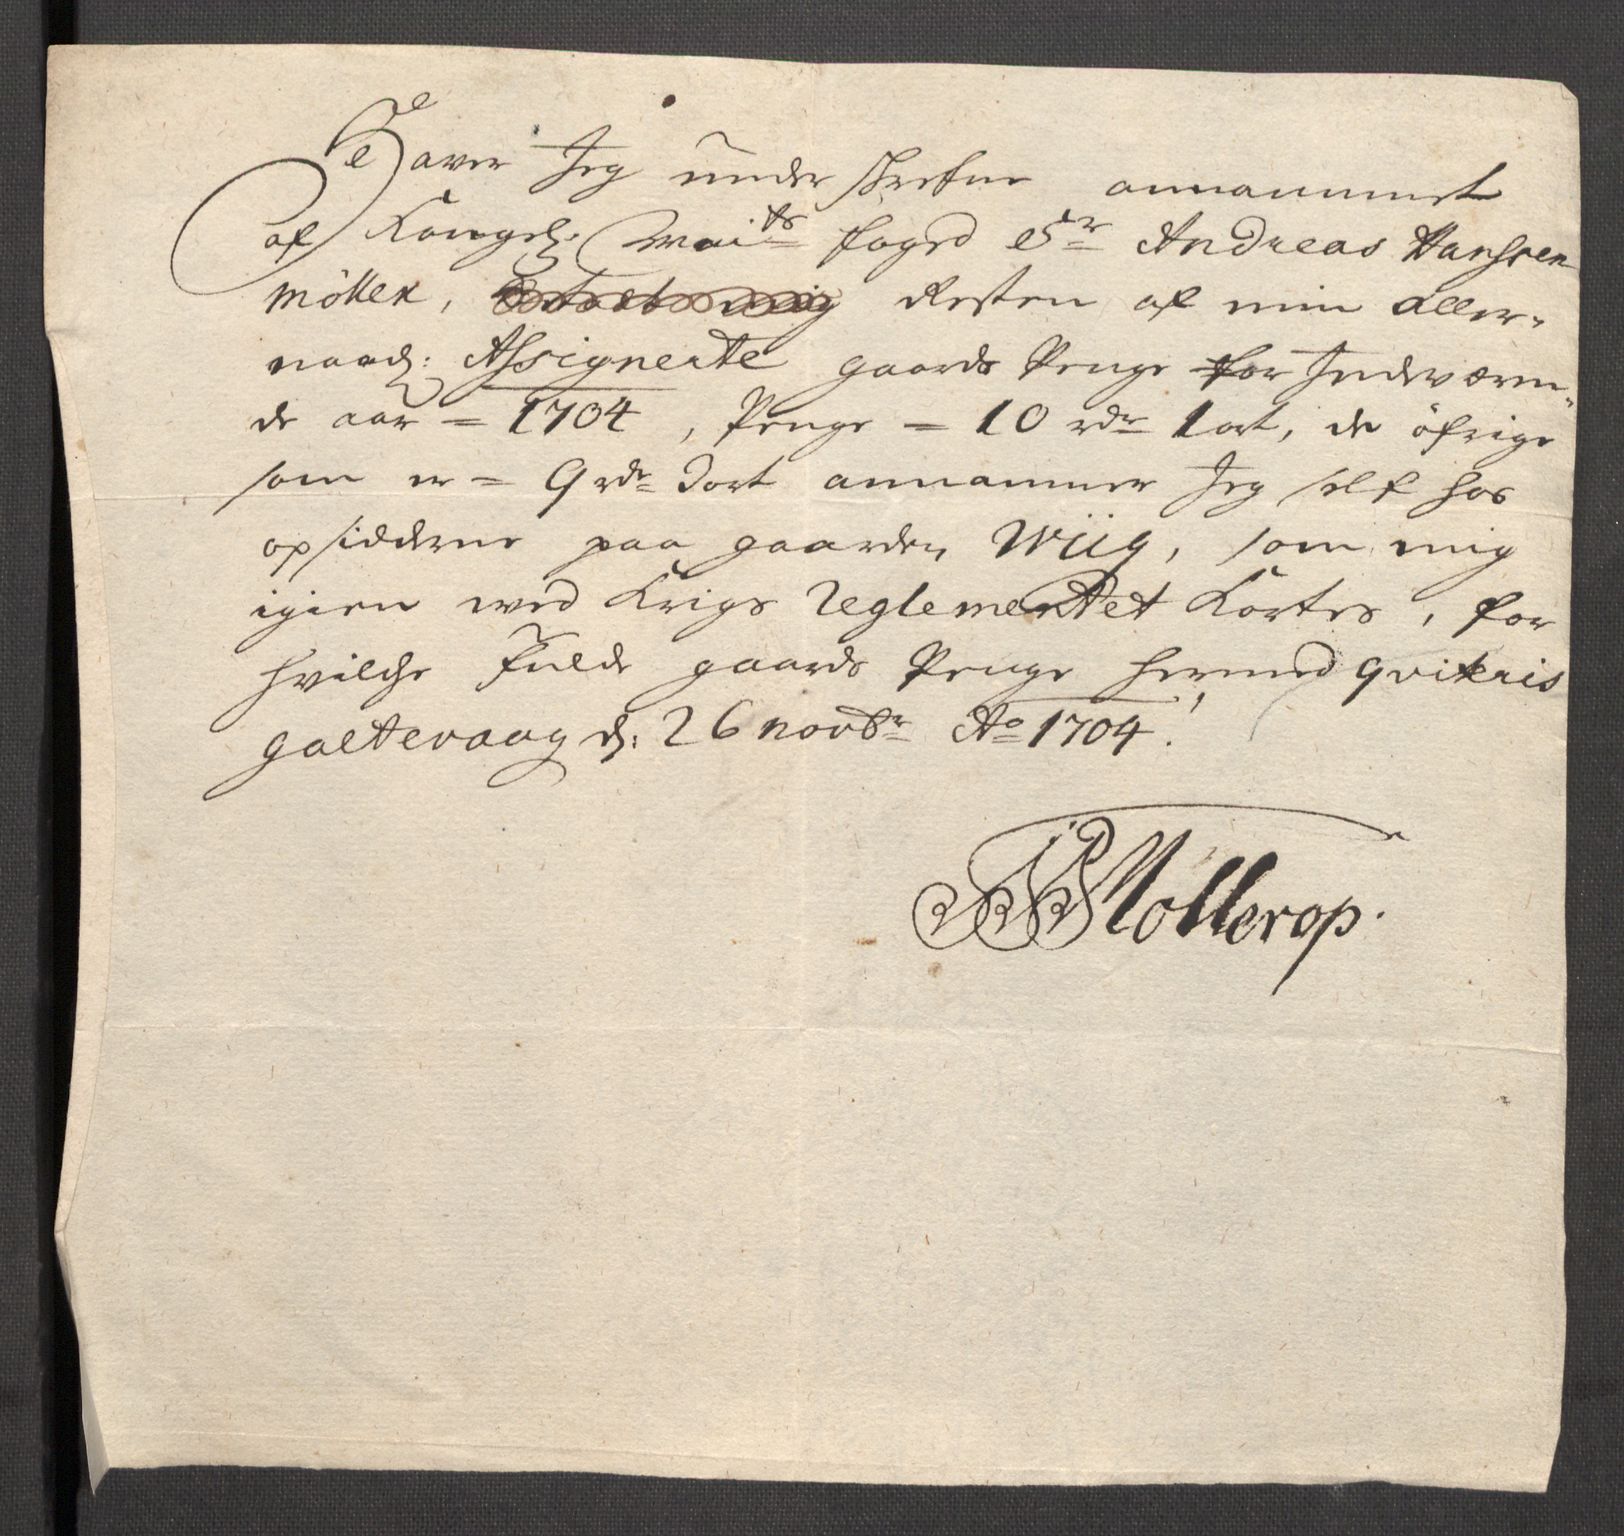 Haver Jeg under skrefne annammet
af Kongel: Maits foged Sr Andreas Hanssen
Möller, Resten af min aller-
naad: Assignerte gaards Penge for Indeværen-
de aar = 1704, Penge = 10 rdr 1 ort, de öfrige
som er = 9 rdr 3 ort annammer Jeg self hos
opsidderne paa gaarden Wiig, som mig
igien wed Krigs Reglementet Kortes, for
hvilche fulde gaards Penge hermed qviteris
galtevaag d: 26 novbr Ao 1704.
Mollerop.